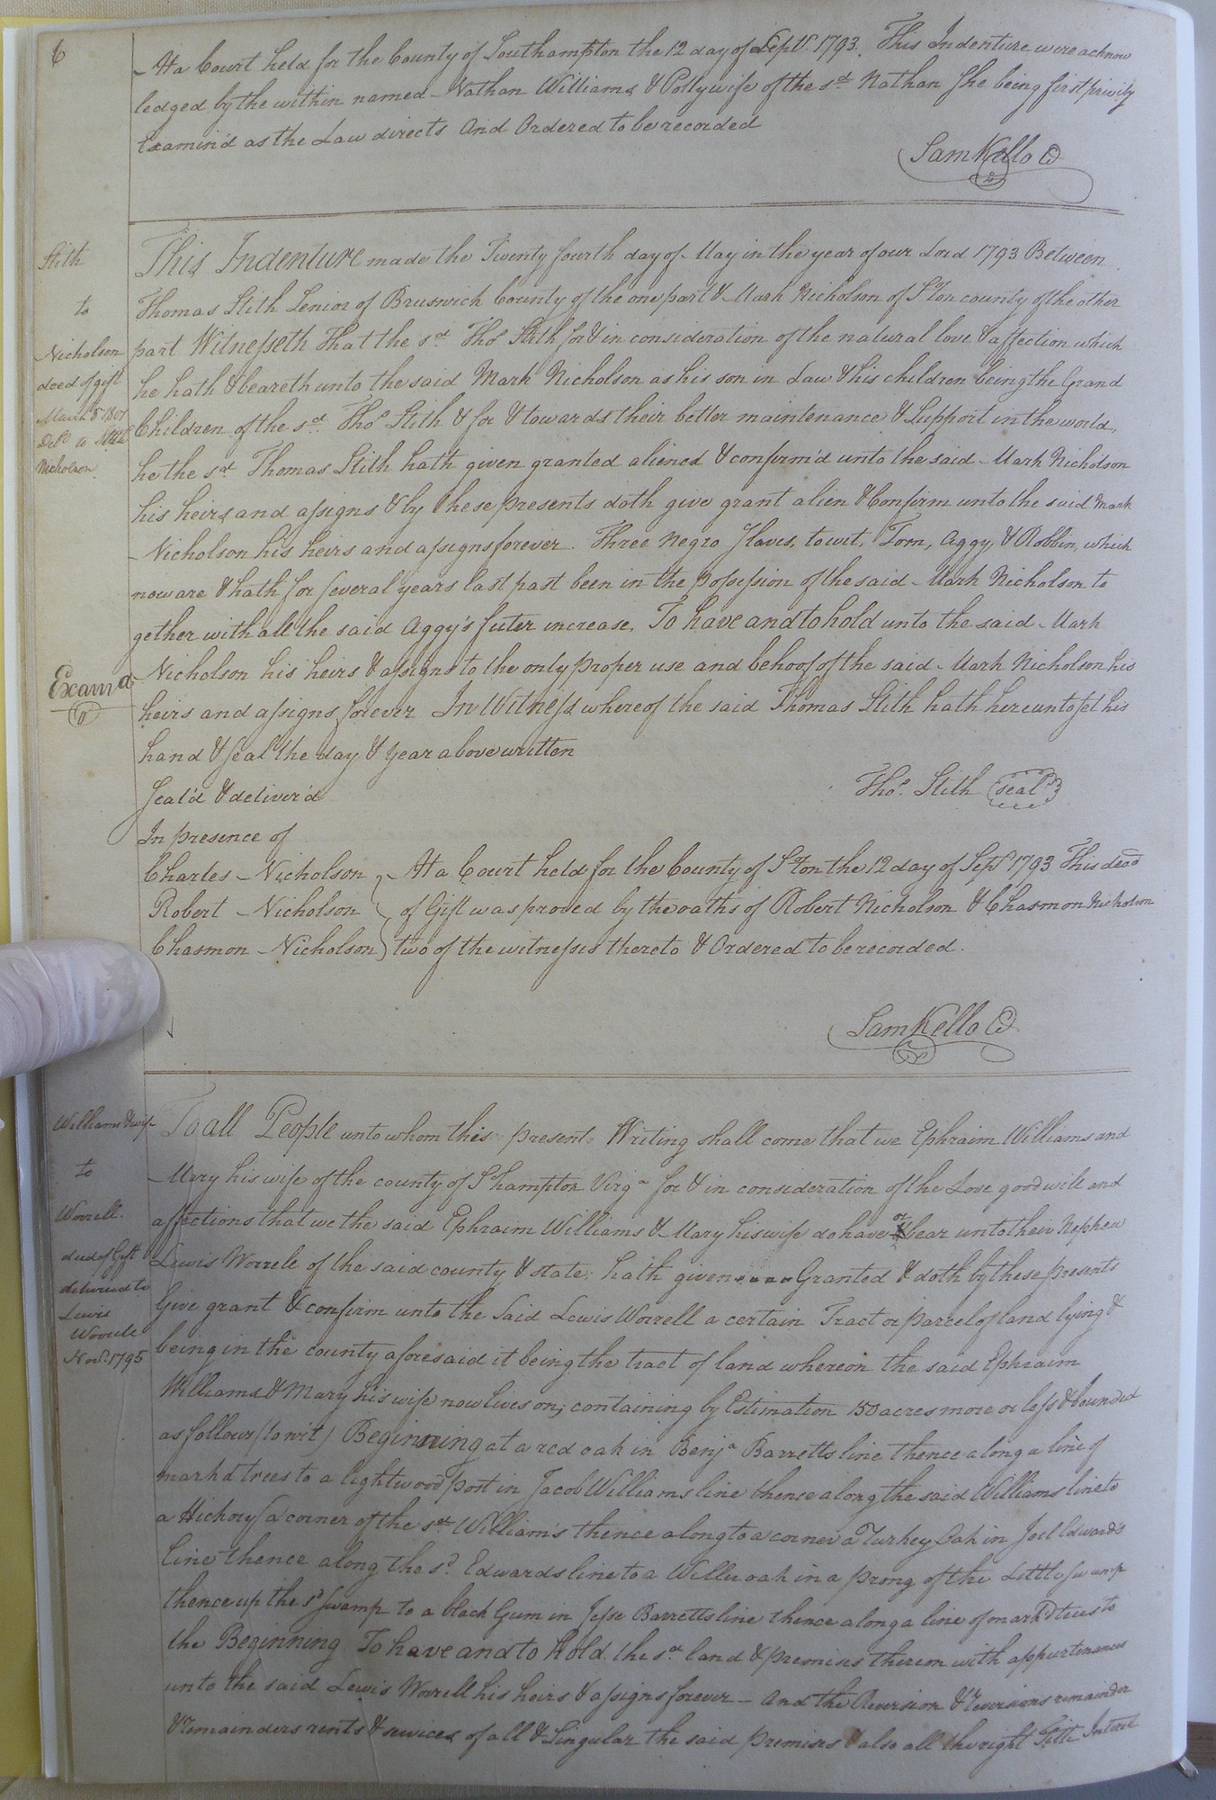 6
At a Court held for the County of Southampton the 12 day of Septr 1793. This Indenture were acknow
ledged by the within named Nathan Williams & Polly wife of the sd Nathan She being first privily
Examin'd as the Law directs And Ordered to be recorded
Sam Kello C
Stith
to
Nicholson
deed of gift
March 5 1801
Deld to Mark
Nicholson
This Indenture made the Twenty fourth day of May in the year of our Lord 1793 Between
Thomas Stith Senior of Bruswich County of the one part & Mark Nicholson of S'ton county of the other
part Witnesseth That the sd Thos Stith for & in consideration of the natural love & affection which
he hath & beareth unto the said Mark Nicholson as his son in Law & his children being the Grand
Children of the sd Thos Stith & for & towards their better maintenance & Support in the world,
he the sd Thomas Stith hath given granted aliened & confirm'd unto the said Mark Nicholson
his heirs and assigns & by these presents doth give grant alien & Confirm unto the said Mark
Nicholson his heirs and assigns forever. Three Negro Slaves, to wit, Tom, Aggy, & Robbin, which
now are & hath for several years last past been in the possession of the said Mark Nicholson to
gether with all the said Aggy's futer increase, To have and to hold unto the said Mark
Examd
Nicholson his heirs & assigns to the only proper use and behoof of the said Mark Nicholson his
heirs and assigns forever In Witness whereof the said Thomas Stith hath hereunto set his
hand & seal the day & year above written
Seal'd & deliver'd
Thos. Stith (seal)
In presence of
Charles Nicholson
Robert Nicholson
Chasmon Nicholson
At a Court held for the County of S'ton the 12 day of Sepr 1793 This deed
of Gift was proved by the oaths of Robert Nicholson & Chasmon Nicholson
two of the witnesses thereto & Ordered to be recorded.
Sam Kello C
Williams & wife
to
Worrell.
deed of Gift
delivered to
Lewis
Worrele
Novr. 1795
To all People unto whom this present Writing shall come that we Ephraim Williams and
Mary his wife of the county of S'hampton Virga for & in consideration of the Love good will and
affections that we the said Ephraim Williams & Mary his wife do have or bear unto their Nephew
Lewis Worrele of the said county & state hath given Granted & doth by these presents
Give grant & confirm unto the Said Lewis Worrell a certain Tract or parcel of land lying &
being in the county aforesaid it being the tract of land whereon the said Ephraim
Williams & Mary his wife now lives on; containing by Estimation 150 acres more or less & bounded
as follows (to wit) Beginning at a red oak in Benja Barretts line thence along a line of
markd trees to a lightwood post in Jacob Williams line thence along the said Williams line to
a Hickory a corner of the sd William's thence along to a corner a Turkey Oak in Joel Edwards
line thence along the sd. Edwards line to a Willi oak in a prong of the Little Swamp
thence up the sd Swamp to a black Gum in Jesse Barretts line thence along a line of mark'd trees to
the Beginning To have and to hold the sd land & premises thereon with appurtenances
unto the said Lewis Worrell his heirs & assigns forever And the Reversion & Reversions remainder
& remainders rents & services of all & Singular the said premises & also all the right Title Interest